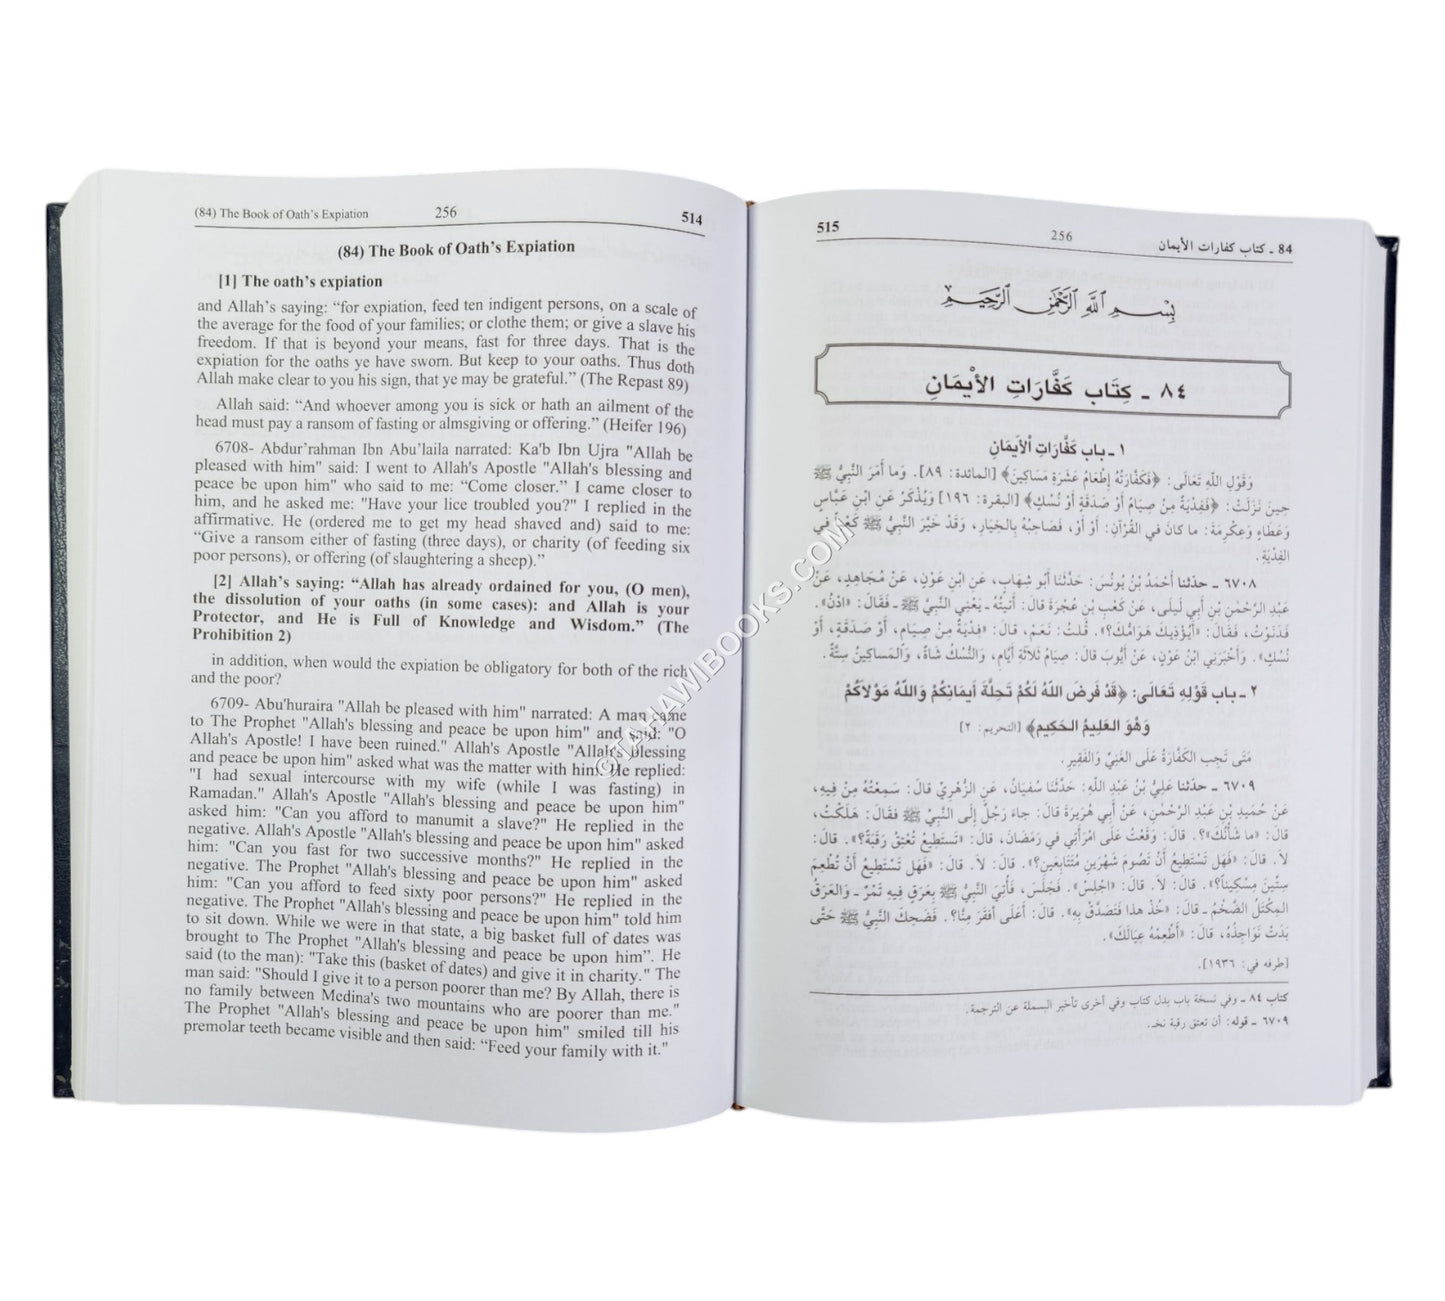 (84) The Book of Oath's Expiation 256 514
(84) The Book of Oath's Expiation
[1] The oath's expiation
and Allah's saying: “for expiation, feed ten indigent persons, on a scale of
the average for the food of your families; or clothe them; or give a slave his
freedom. If that is beyond your means, fast for three days. That is the
expiation for the oaths ye have sworn. But keep to your oaths. Thus doth
Allah make clear to you his sign, that ye may be grateful.” (The Repast 89)
Allah said: “And whoever among you is sick or hath an ailment of the
head must pay a ransom of fasting or almsgiving or offering.” (Heifer 196)
6708- Abdur’rahman Ibn Abu’laila narrated: Ka'b Ibn Ujra "Allah be
pleased with him" said: I went to Allah's Apostle "Allah's blessing and
peace be upon him" who said to me: “Come closer.” I came closer to
him, and he asked me: "Have your lice troubled you?" I replied in the
affirmative. He (ordered me to get my head shaved and) said to me:
“Give a ransom either of fasting (three days), or charity (of feeding six
poor persons), or offering (of slaughtering a sheep).”
[2] Allah’s saying: “Allah has already ordained for you, (O men),
the dissolution of your oaths (in some cases): and Allah is your
Protector, and He is Full of Knowledge and Wisdom.” (The
Prohibition 2)
in addition, when would the expiation be obligatory for both of the rich
and the poor?
6709- Abu'huraira "Allah be pleased with him" narrated: A man came
to The Prophet "Allah's blessing and peace be upon him" and said: "O
Allah's Apostle! I have been ruined." Allah's Apostle "Allah's blessing
and peace be upon him" asked what was the matter with him. He replied:
"I had sexual intercourse with my wife (while I was fasting) in
Ramadan." Allah's Apostle "Allah's blessing and peace be upon him"
asked him: "Can you afford to manumit a slave?" He replied in the
negative. Allah's Apostle "Allah's blessing and peace be upon him" asked
him: "Can you fast for two successive months?" He replied in the
negative. The Prophet "Allah's blessing and peace be upon him" asked
him: "Can you afford to feed sixty poor persons?" He replied in the
negative. The Prophet "Allah's blessing and peace be upon him" told him
to sit down. While we were in that state, a big basket full of dates was
brought to The Prophet "Allah's blessing and peace be upon him”. He
said (to the man): "Take this (basket of dates) and give it in charity." The
man said: "Should I give it to a person poorer than me? By Allah, there is
no family between Medina's two mountains who are poorer than me."
The Prophet "Allah's blessing and peace be upon him" smiled till his
premolar teeth became visible and then said: “Feed your family with it."
84 ـ كتاب كفارات الأيمان 256 515
بِسْمِ اللَّهِ الرَّحْمَٰنِ الرَّحِيمِ
٨٤ ـ كِتَاب كَفَّارَاتِ الأَيْمَانِ
١ ـ باب كَفَّارَاتِ الأَيمَانِ
وَقَوْلِ اللَّهِ تَعَالَى: ﴿فَكَفَّارَتُهُ إِطْعَامُ عَشَرَةِ مَسَاكِينَ﴾ [المائدة: ٨٩]. وَما أَمَرَ النَّبِيُّ ﷺ
حِينَ نَزَلَتْ: ﴿فَفِدْيَةٌ مِنْ صِيَامٍ أَوْ صَدَقَةٍ أَوْ نُسُكٍ﴾ [البقرة: ١٩٦] وَيُذْكَرُ عَنِ ابْنِ عَبَّاسٍ
وَعَطَاءٍ وَعِكْرِمَةَ: ما كانَ في القُرْآنِ: أَوْ أَوْ، فَصَاحِبُهُ بِالخِيَارِ، وَقَدْ خَيَّرَ النَّبِيُّ ﷺ كَعْباً في
الفِدْيَةِ.
٦٧٠٨ ـ حدّثنا أَحْمَدُ بْنُ يُونُسَ: حَدَّثَنَا أَبُو شِهَابٍ، عَنِ ابْنِ عَوْنٍ، عَنْ مُجَاهِدٍ، عَنْ
عَبْدِ الرَّحْمٰنِ بْنِ أَبِي لَيلَى، عَنْ كَعْبِ بْنِ عُجْرَةَ قالَ: أَتَيتُهُ ـ يَعْنِي النَّبِيَّ ﷺ ـ فَقَالَ: «ادْنُ».
فَدَنَوْتُ، فَقَالَ: «أَيُؤْذِيكَ هَوَامُّكَ؟». قُلتُ: نَعَمْ، قالَ: «فِدْيَةٌ مِنْ صِيَامٍ، أَوْ صَدَقَةٍ، أَوْ
نُسُكٍ». وَأَخْبَرَنِي ابْنُ عَوْنٍ، عَنْ أَيُّوبَ قالَ: صِيَامُ ثَلاَثَةِ أَيَّامٍ، وَالنُّسُكُ شَاةٌ، وَالمَسَاكِينُ سِتَّةٌ.
٢ ـ باب قَوْلِهِ تَعَالَى: ﴿قَدْ فَرَضَ اللَّهُ لَكُمْ تَحِلَّةَ أَيمَانِكُمْ وَاللَّهُ مَوْلاَكُمْ
وَهُوَ العَلِيمُ الحَكِيمُ﴾ [التحريم: ٢]
مَتَى تَجِب الكَفَّارَةُ عَلَى الغَنِيِّ وَالفَقِيرِ.
٦٧٠٩ ـ حدّثنا عَلِيُّ بْنُ عَبْدِ اللَّهِ: حَدَّثَنَا سُفيَانُ، عَنِ الزُّهْرِيِّ قالَ: سَمِعْتُهُ مِنْ فِيهِ،
عَنْ حُمَيدِ بْنِ عَبْدِ الرَّحْمٰنِ، عَنْ أَبِي هُرَيرَةَ قالَ: جاءَ رَجُلٌ إِلَى النَّبِيِّ ﷺ فَقَالَ: هَلَكْتُ،
قالَ: «ما شَأْنُكَ؟». قالَ: وَقَعْتُ عَلَى امْرَأَتِي في رَمَضَانَ، قالَ: «تَسْتَطِيعُ تُعْتِقُ رَقَبَةً؟». قالَ:
لاَ. قالَ: «فَهَل تَسْتَطِيعُ أَنْ تَصُومَ شَهْرَينِ مُتَتَابِعَينِ؟». قالَ: لاَ. قالَ: «فَهَل تَسْتَطِيعُ أَنْ تُطْعِمَ
سِتِّينَ مِسْكِيناً؟». قالَ: لاَ. قالَ: «اجْلِسْ». فَجَلَسَ، فَأُتِيَ النَّبِيُّ ﷺ بِعَرَقٍ فِيهِ تَمْرٌ ـ وَالعَرَقُ
المِكْتَلُ الضَّخْمُ ـ قالَ: «خُذْ هذا فَتَصَدَّقْ بِهِ». قالَ: أَعَلَى أَفقَرَ مِنَّا؟. فَضَحِكَ النَّبِيُّ ﷺ حَتَّى
بَدَتْ نَوَاجِذُهُ، قالَ: «أَطْعِمْهُ عِيَالَكَ».
[طرفه في: ١٩٣٦].
كتاب ٨٤ ـ وفي نسخة باب بدل كتاب وفي أخرى تأخير البسملة عن الترجمة.
٦٧٠٩ ـ قوله: أن تعتق رقبة نخـ.
©TAHAWIBOOKS.COM